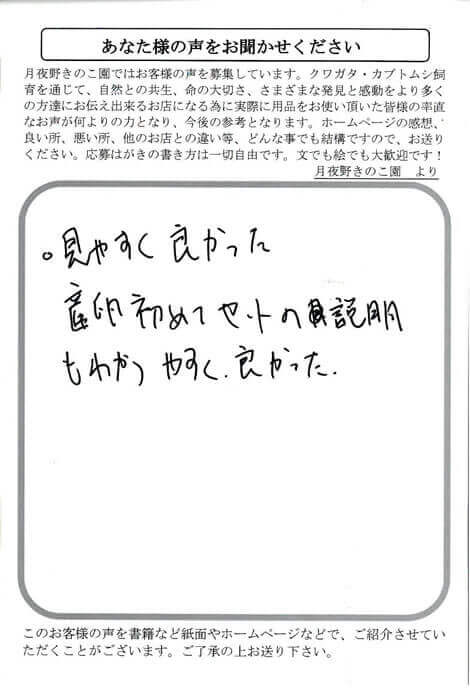 あなた様の声をお聞かせください
月夜野きのこ園ではお客様の声を募集しています。クワガタ・カブトムシ飼
育を通じて、自然との共生、命の大切さ、さまざまな発見と感動をより多く
の方達にお伝え出来るお店になる為に実際に用品をお使い頂いた皆様の率直
なお声が何よりの力となり、今後の参考となります。ホームページの感想、
良い所、悪い所、他のお店との違い等、どんな事でも結構ですので、お送り
ください。応募はがきの書き方は一切自由です。文でも絵でも大歓迎です!
月夜野きのこ園 より
。見やすく 良かった
産卵初めてセットの説明
もわかりやすく.良かった.
このお客様の声を書籍など紙面やホームページなどで、ご紹介させてい
ただくことがございます。ご了承の上お送り下さい。